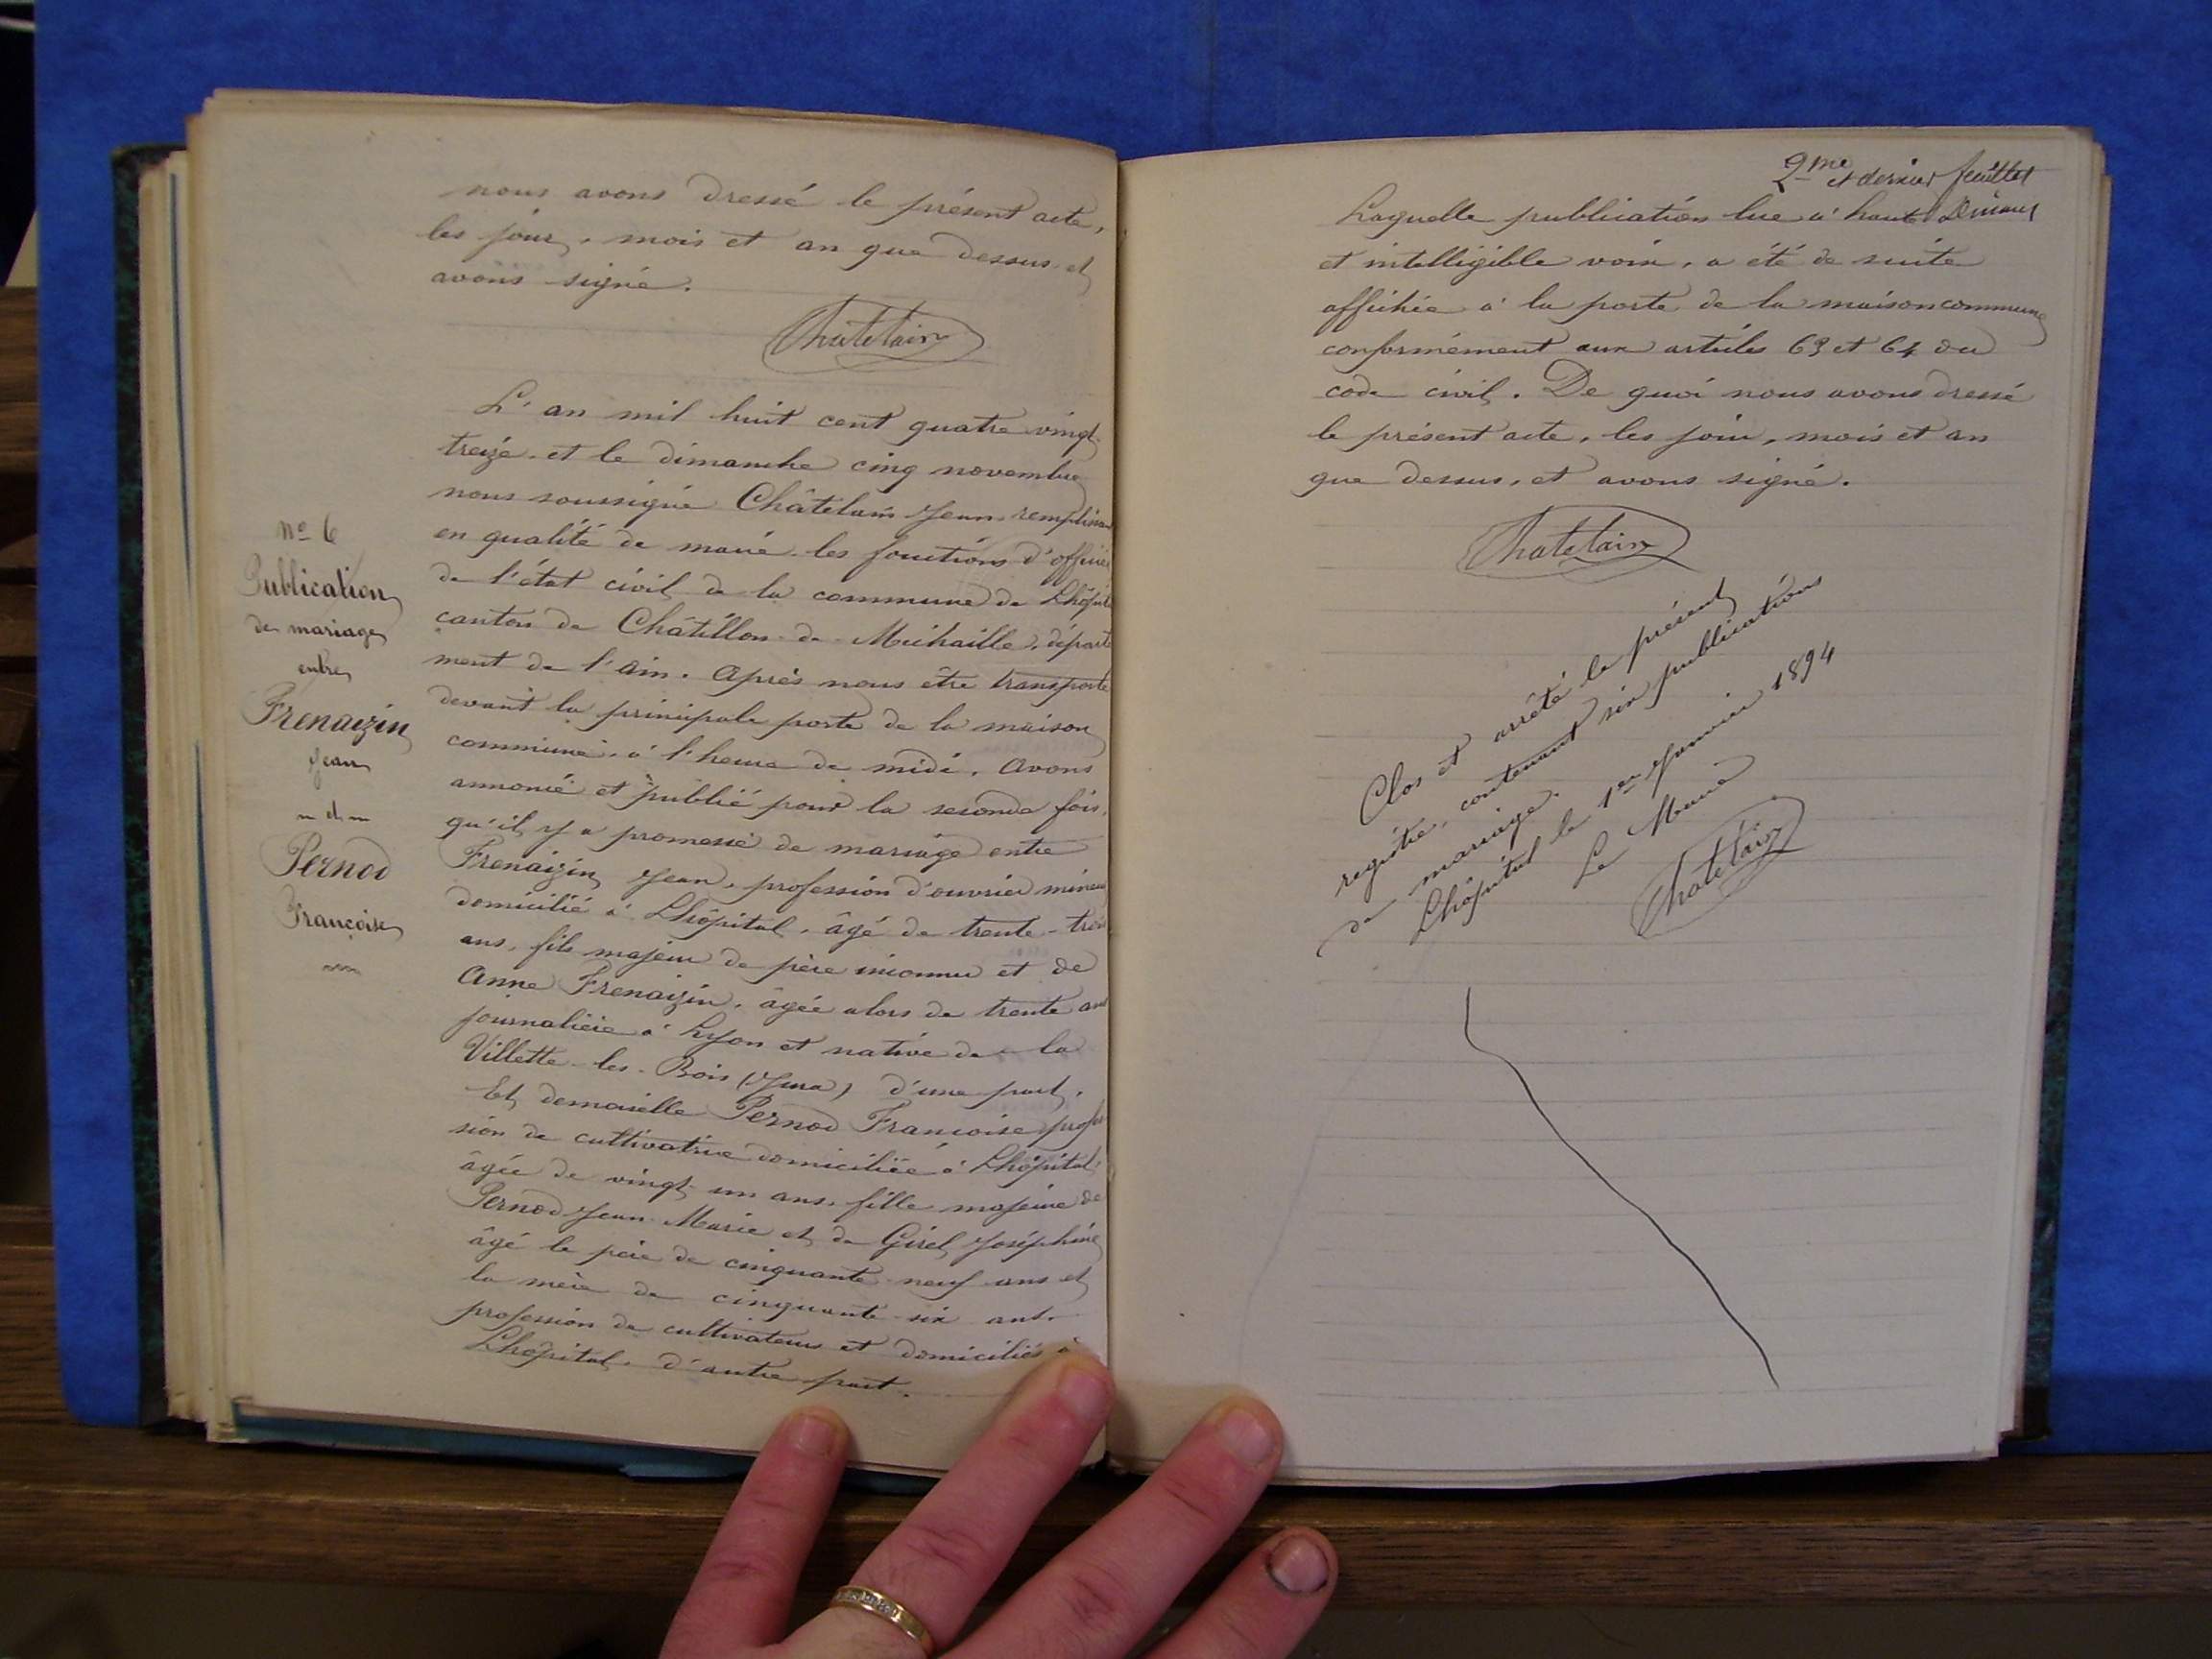 nous avons dressé le présent acte,
les jour, mois et an que dessus et
avons signé.
Chatelain
L'an mil huit cent quatre vingt
treize et le dimanche cinq novembre
nous soussigné Châtelain Jean remplissant
en qualité de maire les fonctions d'officier
de l'état civil de la commune de Lhôpital
canton de Châtillon-de-Michaille, départe
ment de l'ain. Après nous être transporté
devant la principale porte de la maison
commune, à l'heure de midi, Avons
annoncé et publié pour la seconde fois,
qu'il y a promesse de mariage entre
Frenaizin Jean, profession d'ouvrier mineur
domicilié à Lhôpital, âgé de trente-trois
ans, fils majeur de père inconnu et de
Anne Frenaizin, âgée alors de trente ans
journalière à Lyon et native de la
Villette-les-Bois (Jura) d'une part,
Et demoiselle Pernod Françoise profes
sion de cultivatrice domiciliée à Lhôpital
âgée de vingt-un ans, fille majeure de
Pernod Jean-Marie et de Girel Joséphine
âgé le père de cinquante-neuf ans et
la mère de cinquante-six ans,
profession de cultivateurs et domiciliés à
Lhôpital, d'autre part.
n° 6
Publication
de mariage
entre
Frenaizin
Jean
et
Pernod
Françoise
2me et dernier feuillet
Laquelle publication lue à haute
et intelligible voix, a été de suite
affichée à la porte de la maison commune
conformément aux articles 63 et 64 du
code civil. De quoi nous avons dressé
le présent acte, les jour, mois et an
que dessus, et avons signé.
Chatelain
Clos et arrêté le présent
registre, contenant six publications
de mariage.
Lhôpital le 1er Janvier 1894
Le Maire
Chatelain